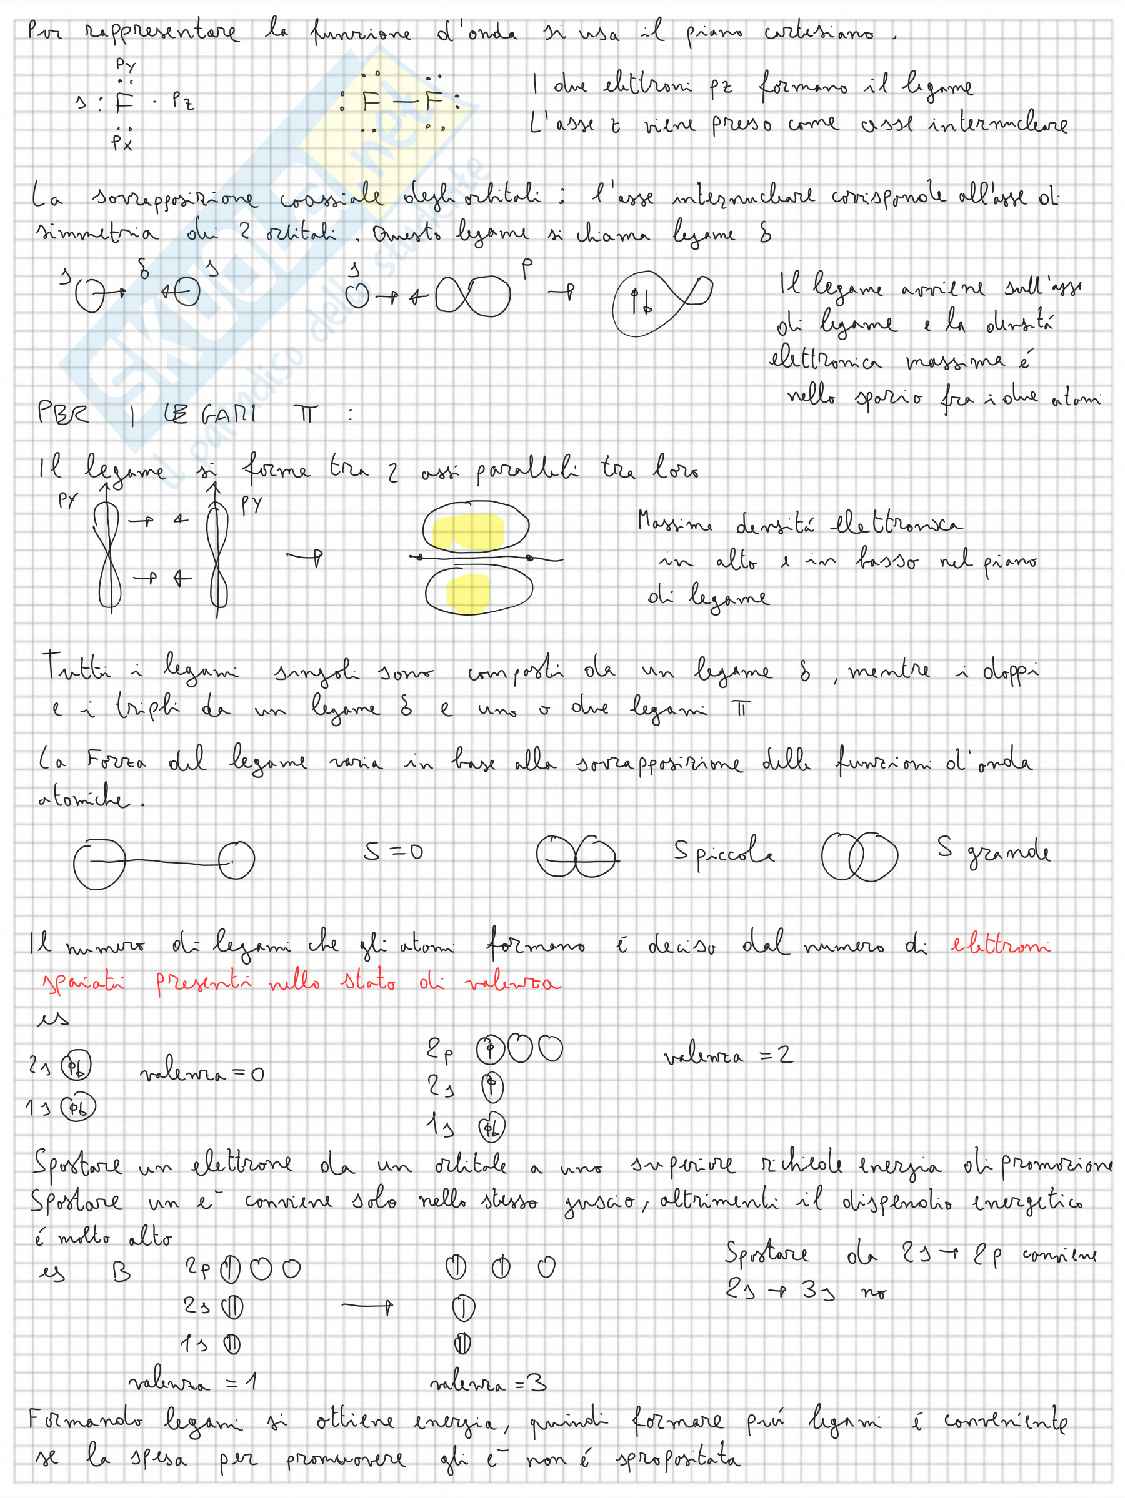 Per rappresentare la funzione d'onda si usa il piano cartesiano.
py
s : F · pz
px
: F — F :
I due elettroni pz formano il legame
L'asse z viene preso come asse internucleare
La sovrapposizione coassiale degli orbitali: l'asse internucleare corisponde all'asse di
simmetria dei 2 orbitali. Questo legame si chiama legame δ
s δ s
s p
Il legame avviene sull'asse
di legame e la densitá
elettronica massima é
nello spazio fra i due atomi
PER I LEGAMI π :
Il legame si forma tra 2 assi paralleli tra loro
py py
Massima densitá elettronica
in alto e in basso nel piano
di legame
Tutti i legami singoli sono composti da un legame δ, mentre i doppi
e i tripli da un legame δ e uno o due legami π
La Forza del legame varia in base alla sovrapposizione delle funzioni d'onda
atomiche.
S = 0 S piccola S grande
Il numero di legami che gli atomi formano é deciso dal numero di elettroni
spaiati presenti nello stato di valenza
es
2s valenza = 0
1s
2p valenza = 2
2s
1s
Spostare un elettrone da un orbitale a uno superiore richiede energia di promozione
Spostare un e⁻ conviene solo nello stesso guscio, altrimenti il dispendio energetico
é molto alto
es B 2p
2s →
1s
valenza = 1 valenza = 3
Spostare da 2s → 2p conviene
2s → 3s no
Formando legami si ottiene energia, quindi formare piú legami é conveniente
se la spesa per promuovere gli e⁻ non é spropositata
SKUOLA.net